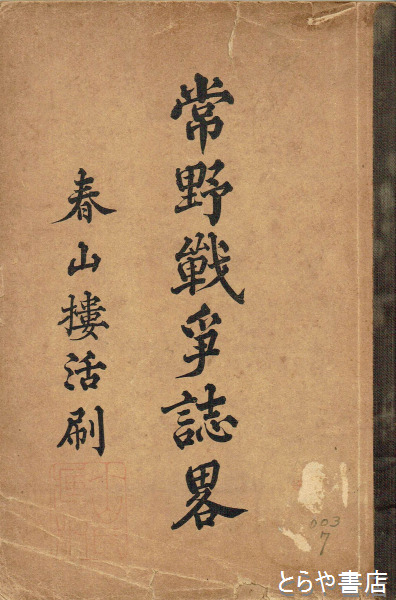 常野戰爭誌畧
春山摟活刷
003
7
とらや書店